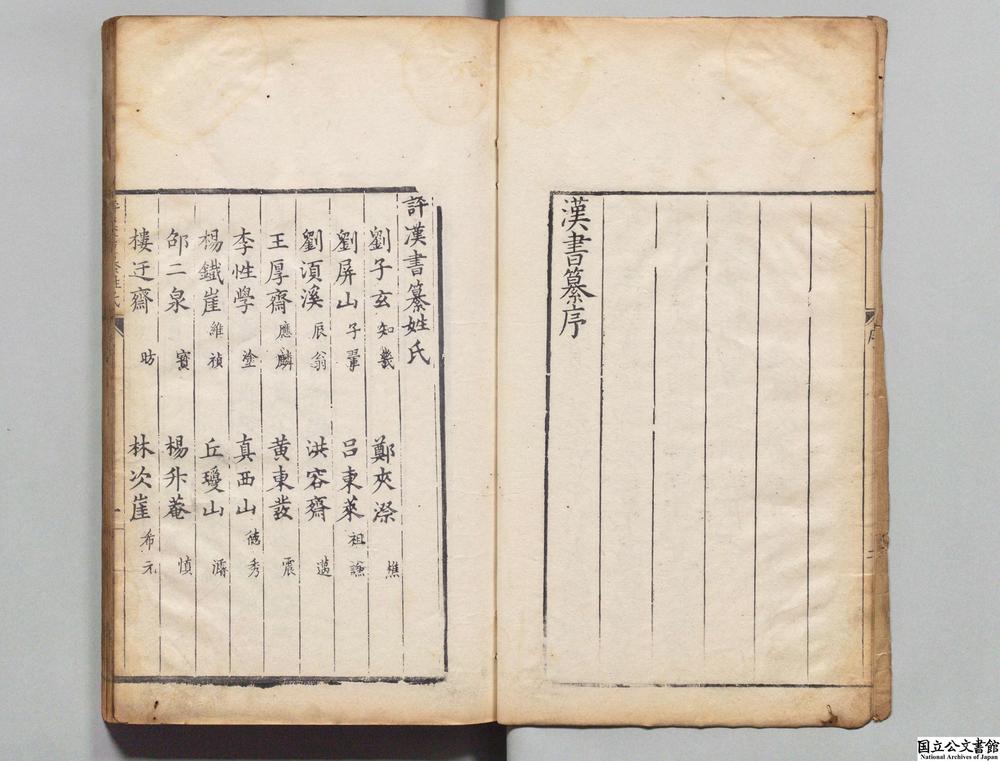 漢書纂序
序
二
評漢書纂姓氏
劉子玄 知幾 鄭夾漈 樵
劉屏山 子翬 呂東萊 祖謙
劉湏溪 辰翁 洪容齋 邁
王厚齋 應麟 黃東發 震
李性學 塗 真西山 德秀
楊鐵崖 維禎 丘瓊山 濬
邵二泉 寶 楊升菴 慎
樓迂齋 昉 林次崖 希元
国立公文書館
National Archives of Japan